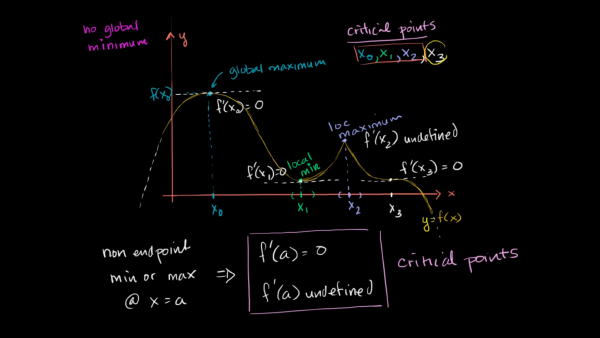 no global
minimum
y
critical points
x₀, x₁, x₂, x₃
global maximum
f(x₀)
f'(x₀) = 0
loc
maximum
f'(x₂) undefined
f'(x₁)=0
local
min
f'(x₃) = 0
x
x₀
x₁
x₂
x₃
y=f(x)
non endpoint
min or max
@ x=a
⇒
f'(a) = 0
f'(a) undefined
critical points